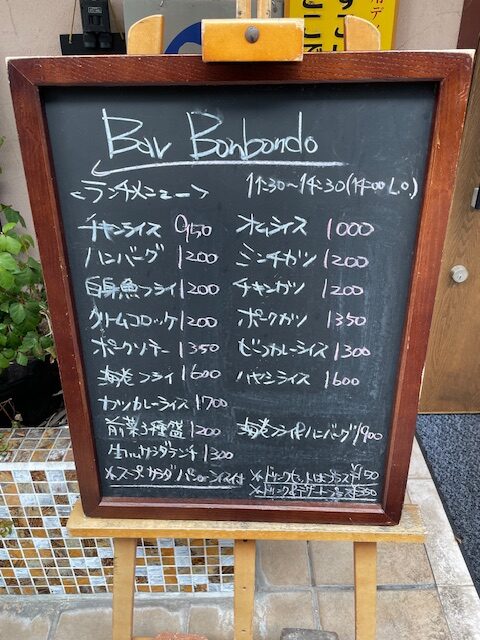 Bar Bonbondo
<ランチメニュー> 11:30~14:30(14:00 L.O.)
チキンライス 950 オムライス 1000
ハンバーグ 1200 ミンチカツ 1200
白身魚フライ 1200 チキンカツ 1200
クリームコロッケ 1200 ポークカツ 1350
ポークソテー 1350 ビーフカレーライス 1300
海老フライ 1600 ハヤシライス 1600
カツカレーライス 1700
前菜3種盛 1200 海老フライ&ハンバーグ 1900
生ハムサラダランチ 1300
※スープ サラダ パン or ライス付 ※ドリンクセットはプラス¥150
※ドリンク&デザートプラス¥350